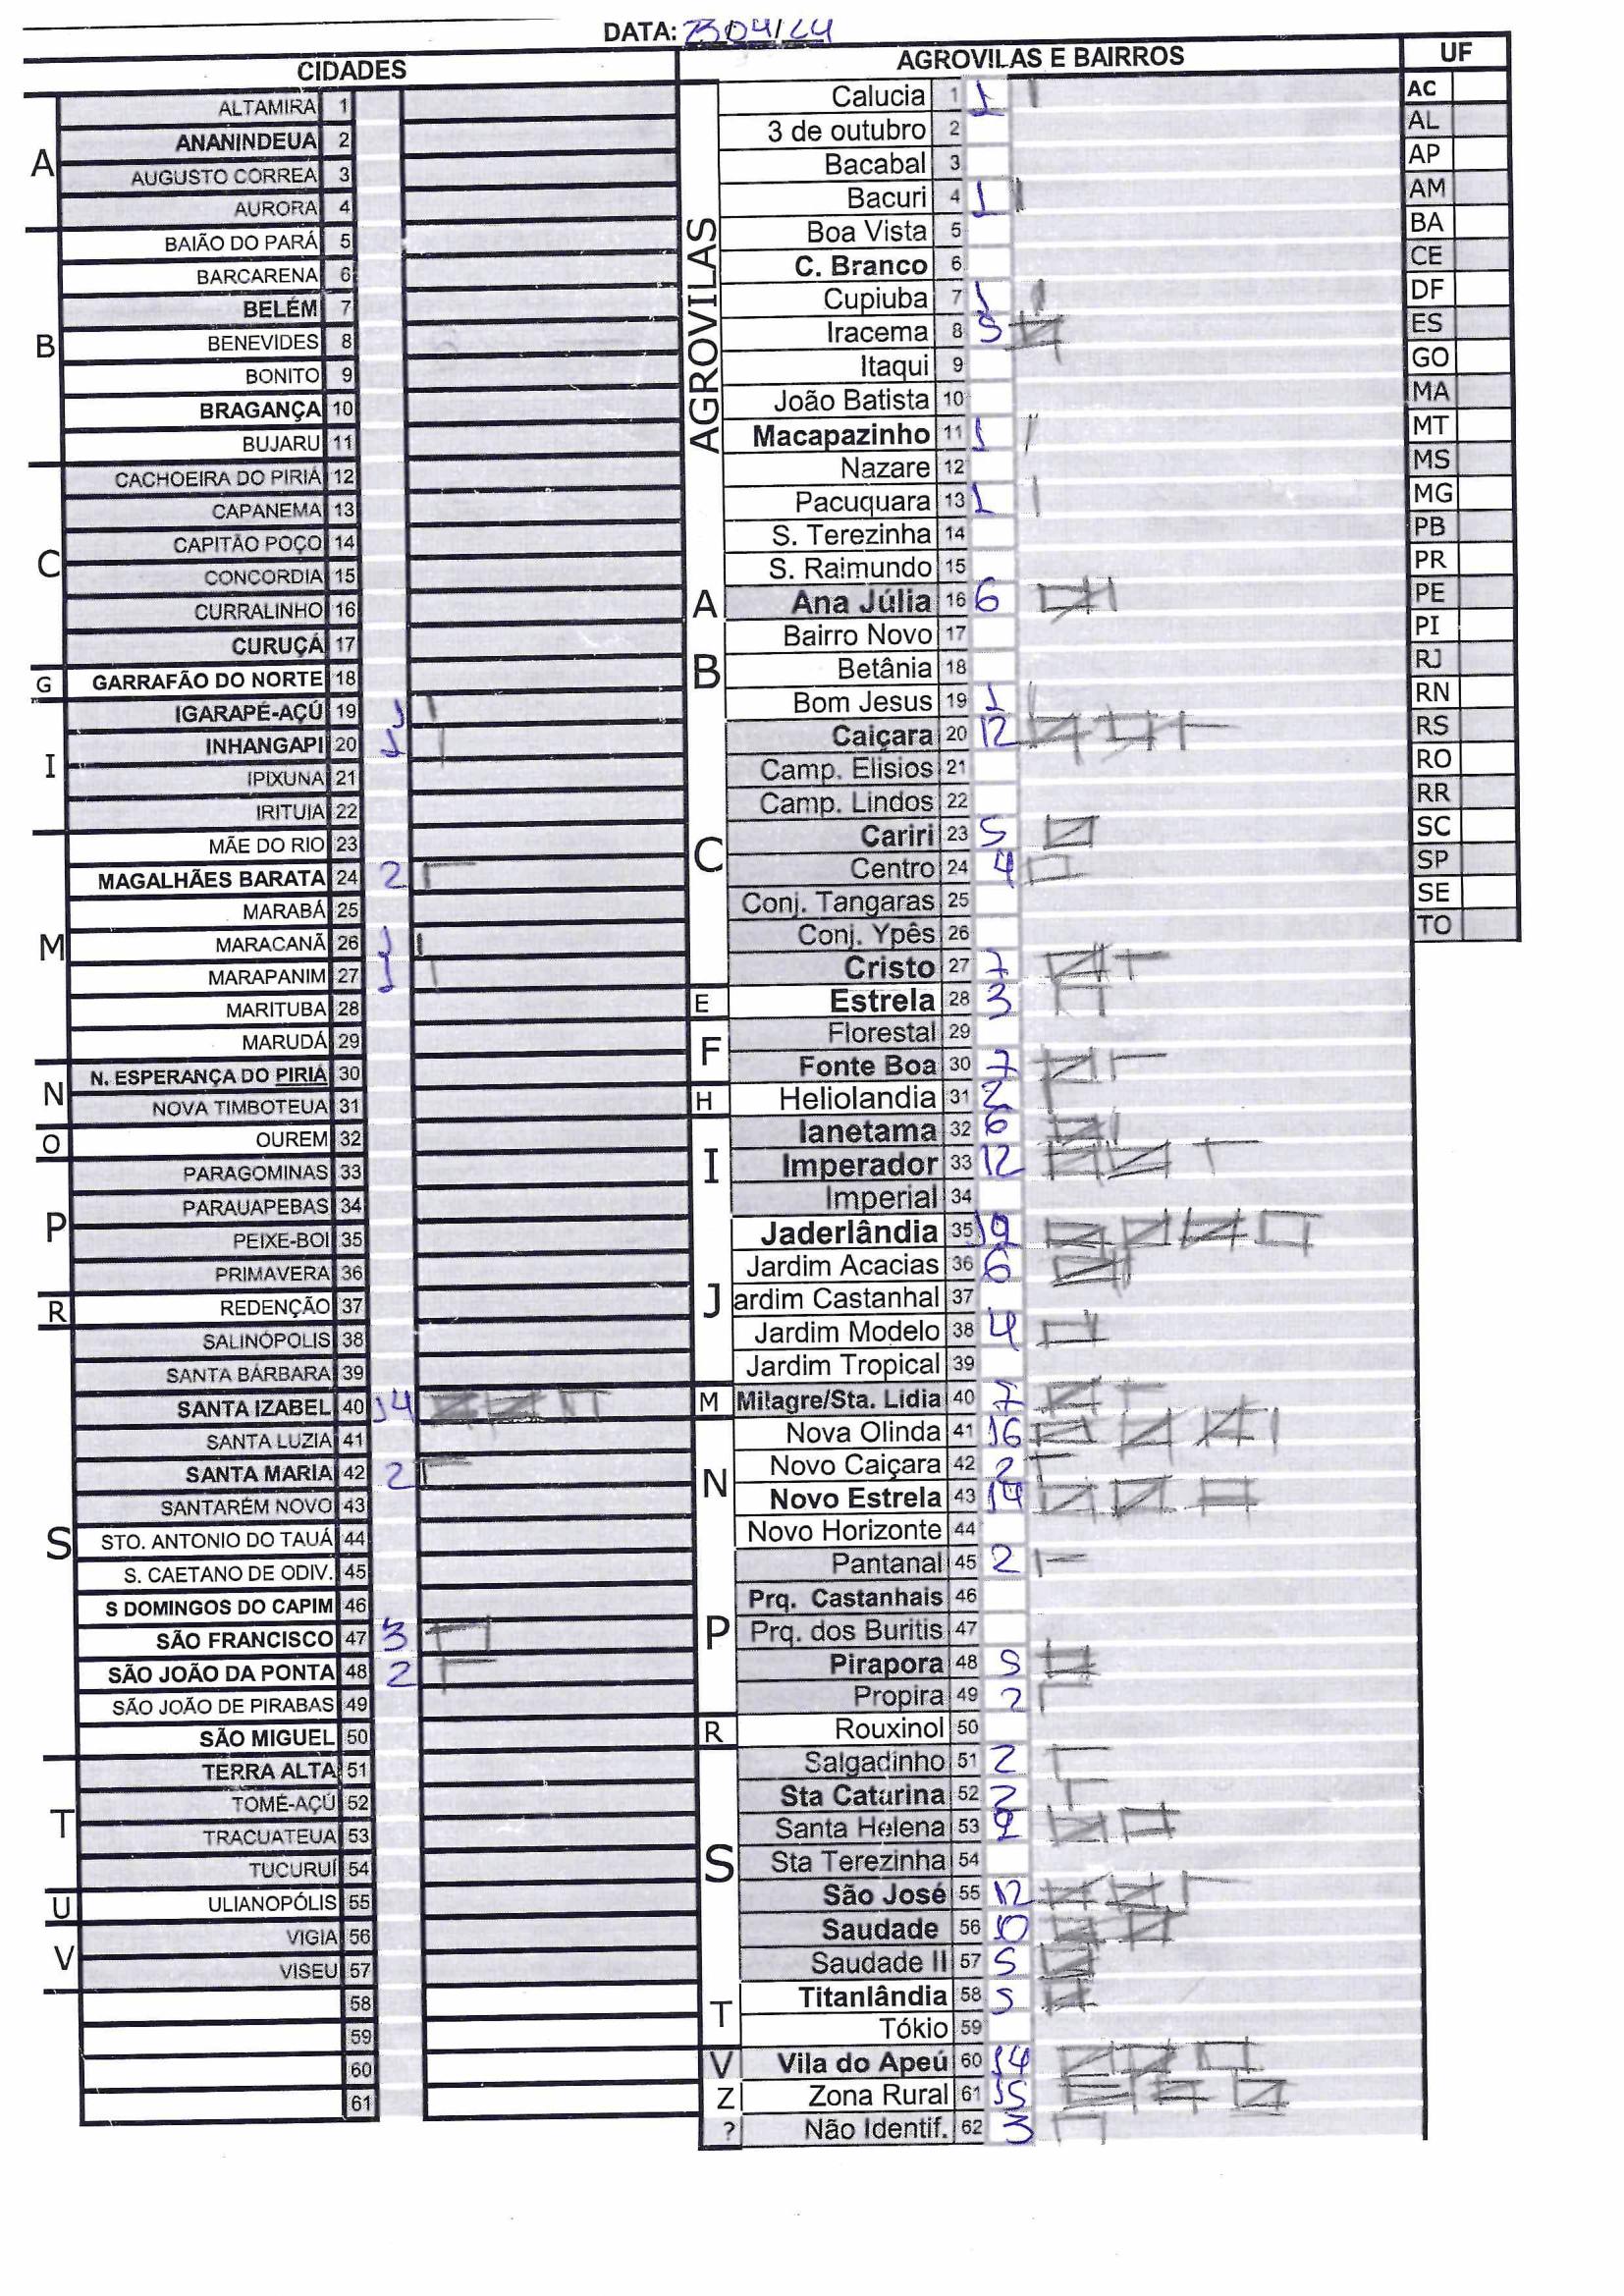 DATA: 23/04/24
CIDADES
A
ALTAMIRA 1
ANANINDEUA 2
AUGUSTO CORREA 3
AURORA 4
B
BAIÃO DO PARÁ 5
BARCARENA 6
BELÉM 7
BENEVIDES 8
BONITO 9
BRAGANÇA 10
BUJARU 11
C
CACHOEIRA DO PIRIÁ 12
CAPANEMA 13
CAPITÃO POÇO 14
CONCORDIA 15
CURRALINHO 16
CURUÇÁ 17
G
GARRAFÃO DO NORTE 18
I
IGARAPÉ-AÇÚ 19 1
INHANGAPI 20 1
IPIXUNA 21
IRITUIA 22
M
MÃE DO RIO 23
MAGALHÃES BARATA 24 2
MARABÁ 25
MARACANÃ 26 1
MARAPANIM 27 1
MARITUBA 28
MARUDÁ 29
N
N. ESPERANÇA DO PIRIÁ 30
NOVA TIMBOTEUA 31
O
OUREM 32
P
PARAGOMINAS 33
PARAUAPEBAS 34
PEIXE-BOI 35
PRIMAVERA 36
R
REDENÇÃO 37
S
SALINÓPOLIS 38
SANTA BÁRBARA 39
SANTA IZABEL 40 14
SANTA LUZIA 41
SANTA MARIA 42 2
SANTARÉM NOVO 43
STO. ANTONIO DO TAUÁ 44
S. CAETANO DE ODIV. 45
S DOMINGOS DO CAPIM 46
SÃO FRANCISCO 47 3
SÃO JOÃO DA PONTA 48 2
SÃO JOÃO DE PIRABAS 49
SÃO MIGUEL 50
T
TERRA ALTA 51
TOMÉ-AÇÚ 52
TRACUATEUA 53
TUCURUÍ 54
U
ULIANOPÓLIS 55
V
VIGIA 56
VISEU 57
58
59
60
61
AGROVILAS E BAIRROS
AGROVILAS
Calucia 1 1
3 de outubro 2
Bacabal 3
Bacuri 4 1
Boa Vista 5
C. Branco 6
Cupiuba 7 1
Iracema 8 5
Itaqui 9
João Batista 10
Macapazinho 11 1
Nazare 12
Pacuquara 13 1
S. Terezinha 14
S. Raimundo 15
A
Ana Júlia 16 6
B
Bairro Novo 17
Betânia 18
Bom Jesus 19 1
C
Caiçara 20 12
Camp. Elisios 21
Camp. Lindos 22
Cariri 23 5
Centro 24 4
Conj. Tangaras 25
Conj. Ypês 26
Cristo 27 7
E
Estrela 28 3
F
Florestal 29
Fonte Boa 30 7
H
Heliolandia 31 2
I
Ianetama 32 6
Imperador 33 12
Imperial 34
J
Jaderlândia 35 19
Jardim Acacias 36 6
ardim Castanhal 37
Jardim Modelo 38 4
Jardim Tropical 39
M
Milagre/Sta. Lidia 40 7
N
Nova Olinda 41 16
Novo Caiçara 42 2
Novo Estrela 43 14
Novo Horizonte 44
P
Pantanal 45 2
Prq. Castanhais 46
Prq. dos Buritis 47
Pirapora 48 5
Propira 49 2
R
Rouxinol 50
S
Salgadinho 51 2
Sta Catarina 52 2
Santa Helena 53 9
Sta Terezinha 54
São José 55 12
Saudade 56 10
Saudade II 57 5
T
Titanlândia 58 5
Tókio 59
V
Vila do Apeú 60 14
Z
Zona Rural 61 15
?
Não Identif. 62 3
UF
AC
AL
AP
AM
BA
CE
DF
ES
GO
MA
MT
MS
MG
PB
PR
PE
PI
RJ
RN
RS
RO
RR
SC
SP
SE
TO